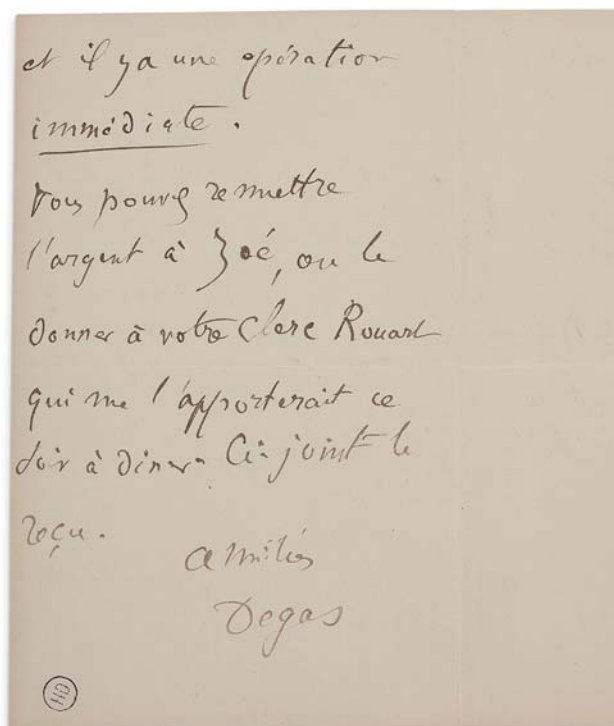 et il y a une opération
immédiate.
Vous pouvez remettre
l'argent à Zoé, ou le
donner à votre Clerc Rouart
qui me l'apporterait ce
soir à dîner. Ci-joint le
reçu.
Amitiés
Degas
HD